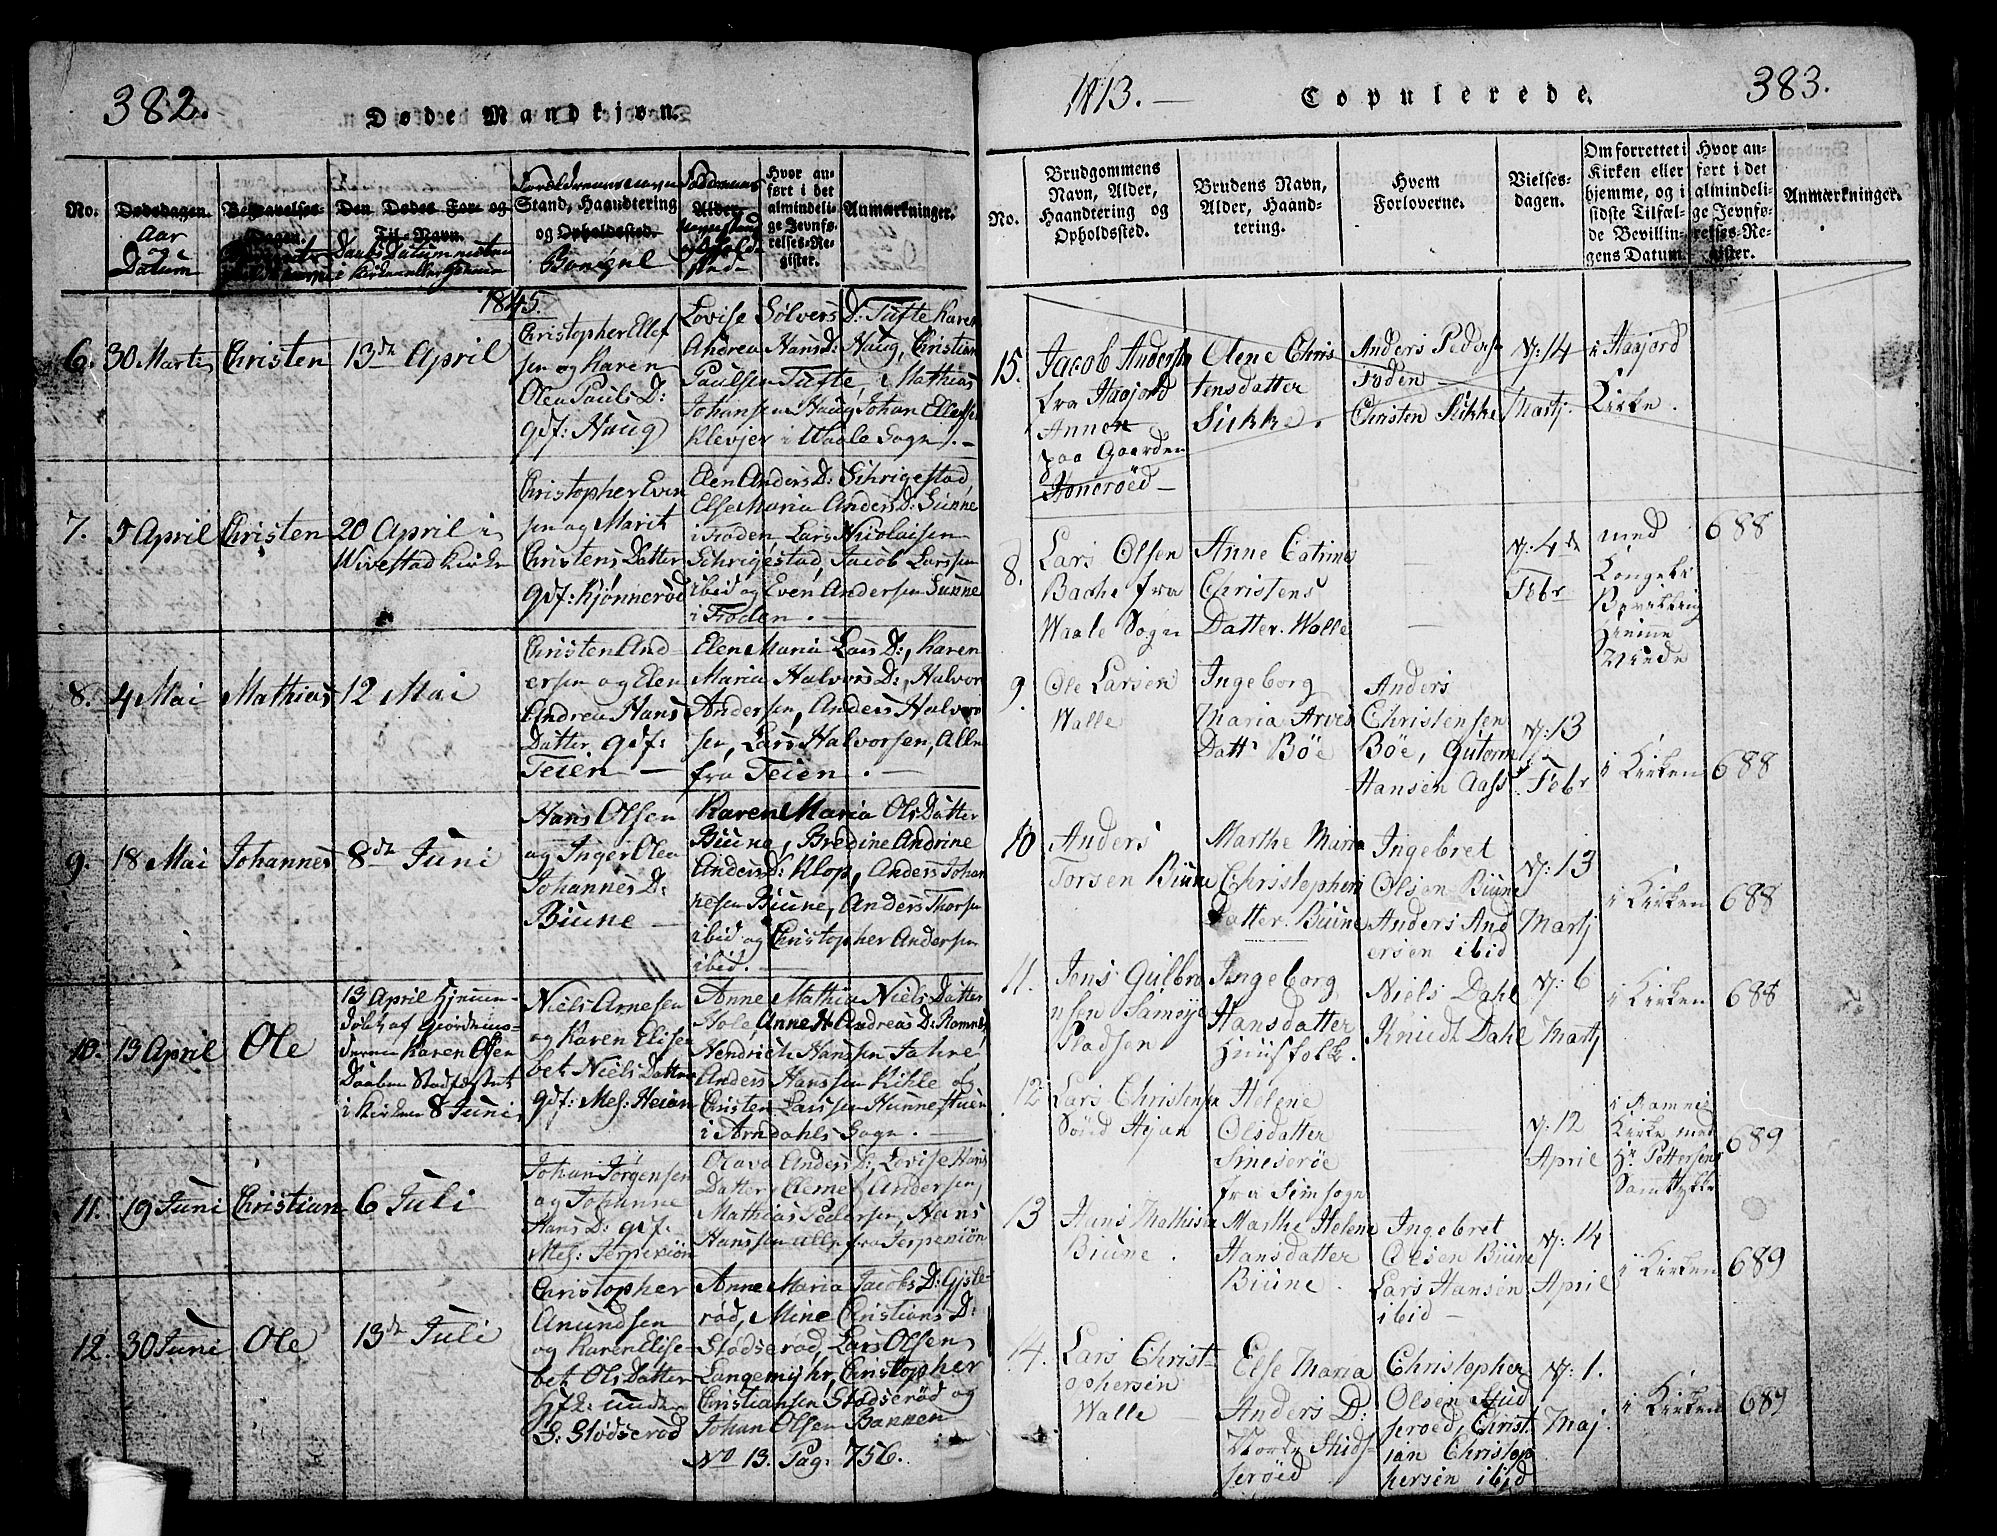 382.
Døde Mandkjøn.
No.
Dødsdagen.
Aar
Datum
Begravelses-
Dagen.
Den Dødes For- og
Til-Navn.
Daabs Datum
Stand, Haandtering
og Opholdssted.
Alder.
Hvor an-
ført i det
almindeli-
ge Jevnfø-
relses-Re-
gister.
Anmærkninger.
1845.
6. 30 Marti Christen 13de April
Christopher Ellef
sen og Karen
Olea Pauls D:
Gdf: Haug
Lovise Sølvers D: Tufte Karen
Andrea Hans D: Haug, Christian
Paulsen Tufte, Mathias
Johansen Haug, Johan Ellefsen
Klevjer i Waale Sogn. —
7. 5 April Christen 20 April i
Wivestad Kirke
Christopher Even
sen og Marit
Christens Datter
Gdf: Kjønnerød
Elen Anders D: Schrigestad
Else Maria Anders D: Sunne
i Froden Lars Nicolaisen
Schrigestad, Jacob Larssen
ibid og Even Andersen Sunne
i Froden. —
8. 4 Mai Mathias 12 Mai
Christen And
ersen og Elen
Andrea Hans
Datter Gdf:
Teien —
Elen Maria Lars D:, Karen
Maria Halvors D:, Halvor
Andersen, Anders Halvor
sen, Lars Halvorsen, Alle
fra Teien. —
9. 18 Mai Johannes 8de Juni
Hans Olsen
og Inger Olea
Johannes D:
Biune —
Karen Maria Ols Datter
Biune, Bredine Andrine
Anders D: Klop, Anders Johan
nesen Biune, Anders Thorsen
ibid og Christopher Andersen
ibid. —
10. 13 April Ole
13 April Hjemme-
døbt af Giordmo-
deren Karen Olsen
Daaben Stadfæstet
i Kirken 8 Juni
Niels Arnesen
og Karen Elisa
bet Niels Datter
Gdf: Mes: Heian
Anne Mathia Niels Datter
Hole, Anne H Andreas D: Ramnes
Hendrich Hanssen Jahre
Anders Hanssen Kihle og
Christen Larssen Hunnestuen
i Arndahls Sogn. —
11. 19 Juni Christian 6 Juli
Johan Jørgensen
og Johanne
Hans D: Gdf.
Mes: Jerpeniøn
Olava Anders D:, Lovise Hans
Datter, Clemet Andersen,
Mathias Pedersen, Hans
Hanssen alle fra Jerpeniøn
12. 30 Juni Ole 13de Juli
Christopher
Anundsen
og Karen Elise-
bet Ols Datter
Hfk: under
G: Stødserød
Anne Maria Jacobs D: Gisle-
rød, Mine Christians D:
Stødserød, Lars Olsen
Langemyhr, Christopher
Christiansen Stødserød og
Johan Olsen Bakken
No 13. Pag: 756.
1813. —
Copulerede.
383.
No.
Brudgommens
Navn, Alder,
Haandtering og
Opholdssted.
Brudens Navn,
Alder, Haand-
tering.
Hvem
Forloverne.
Vielses-
dagen.
Om forrettet i
Kirken eller
hjemme, og i
sidste Tilfæl-
de Bevillin-
gens Datum.
Hvor an-
ført i det
almindeli-
ge Jevnfø-
relses-Re-
gister.
Anmærkninger.
15. Jacob Andersen
fra Haajord
Annex
paa Gaarden
Honerøed —
Olene Chris
tensdatter
Sukke.
Anders Peders
Foden —
Christen Sukke
D: 14
Martj.
i Haajord
Kirke.
8. Lars Olsen
Bache fra
Waale Sogn
Anne Catrine
Christens
Datter. Walle
D: 4de
Febr
med
Kongel:
Bevilling
hieme
Viede
688
9. Ole Larsen
Walle
Ingeborg
Maria Arves
Dattr Bøe
Anders
Christensen
Bøe, Gutorm
Hansen Aass
D: 13
Febr
i Kirken 688
10 Anders
Torsen Biune
Marthe Maria
Christophers
Datter. Biune
Ingebret
Olsen Biune
Anders And
ersen ibid
D: 13
Martj
i Kirken 688
11. Jens Gulbra
nsen Samøje
Pladsen
Ingeborg
Hansdatter
Huusfolk.
Niels Dahl
Knudt Dahl
D: 6
Martj
i Kirken 688
12 Lars Christensen
Sønd Hejan
Helene
Olsdatter
Sineserøe
fra Semsogn
D: 12
April
i Ramnes
Kirke med
Hr Pettersens
Samtykke
689
13 Hans Mathisen
Biune.
Marthe Helene
Hansdatter
Biune
Ingebret
Olsen Biune
Lars Hansen
ibid —
D: 14
April
i Kirken 689
14. Lars Christ-
ophersen
Walle
Else Maria
Anders D:
Nordr Skids-
serøed
Christopher
Olsen Stud
serøed, Christ
ian Christop
hersen ibid
D: 1.
Maj
i Kirken 689